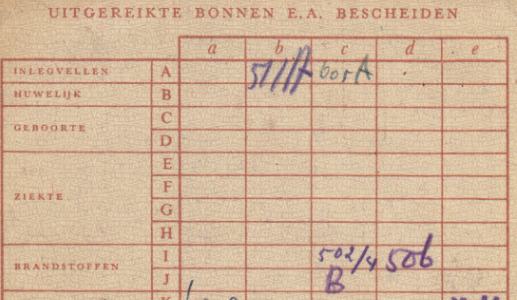 UITGEREIKTE BONNEN E.A. BESCHEIDEN
a b c d e
INLEGVELLEN A 511/A 601A
HUWELIJK B
GEBOORTE C
D
ZIEKTE E
F
G
H
BRANDSTOFFEN I 502/4 506
J B
K